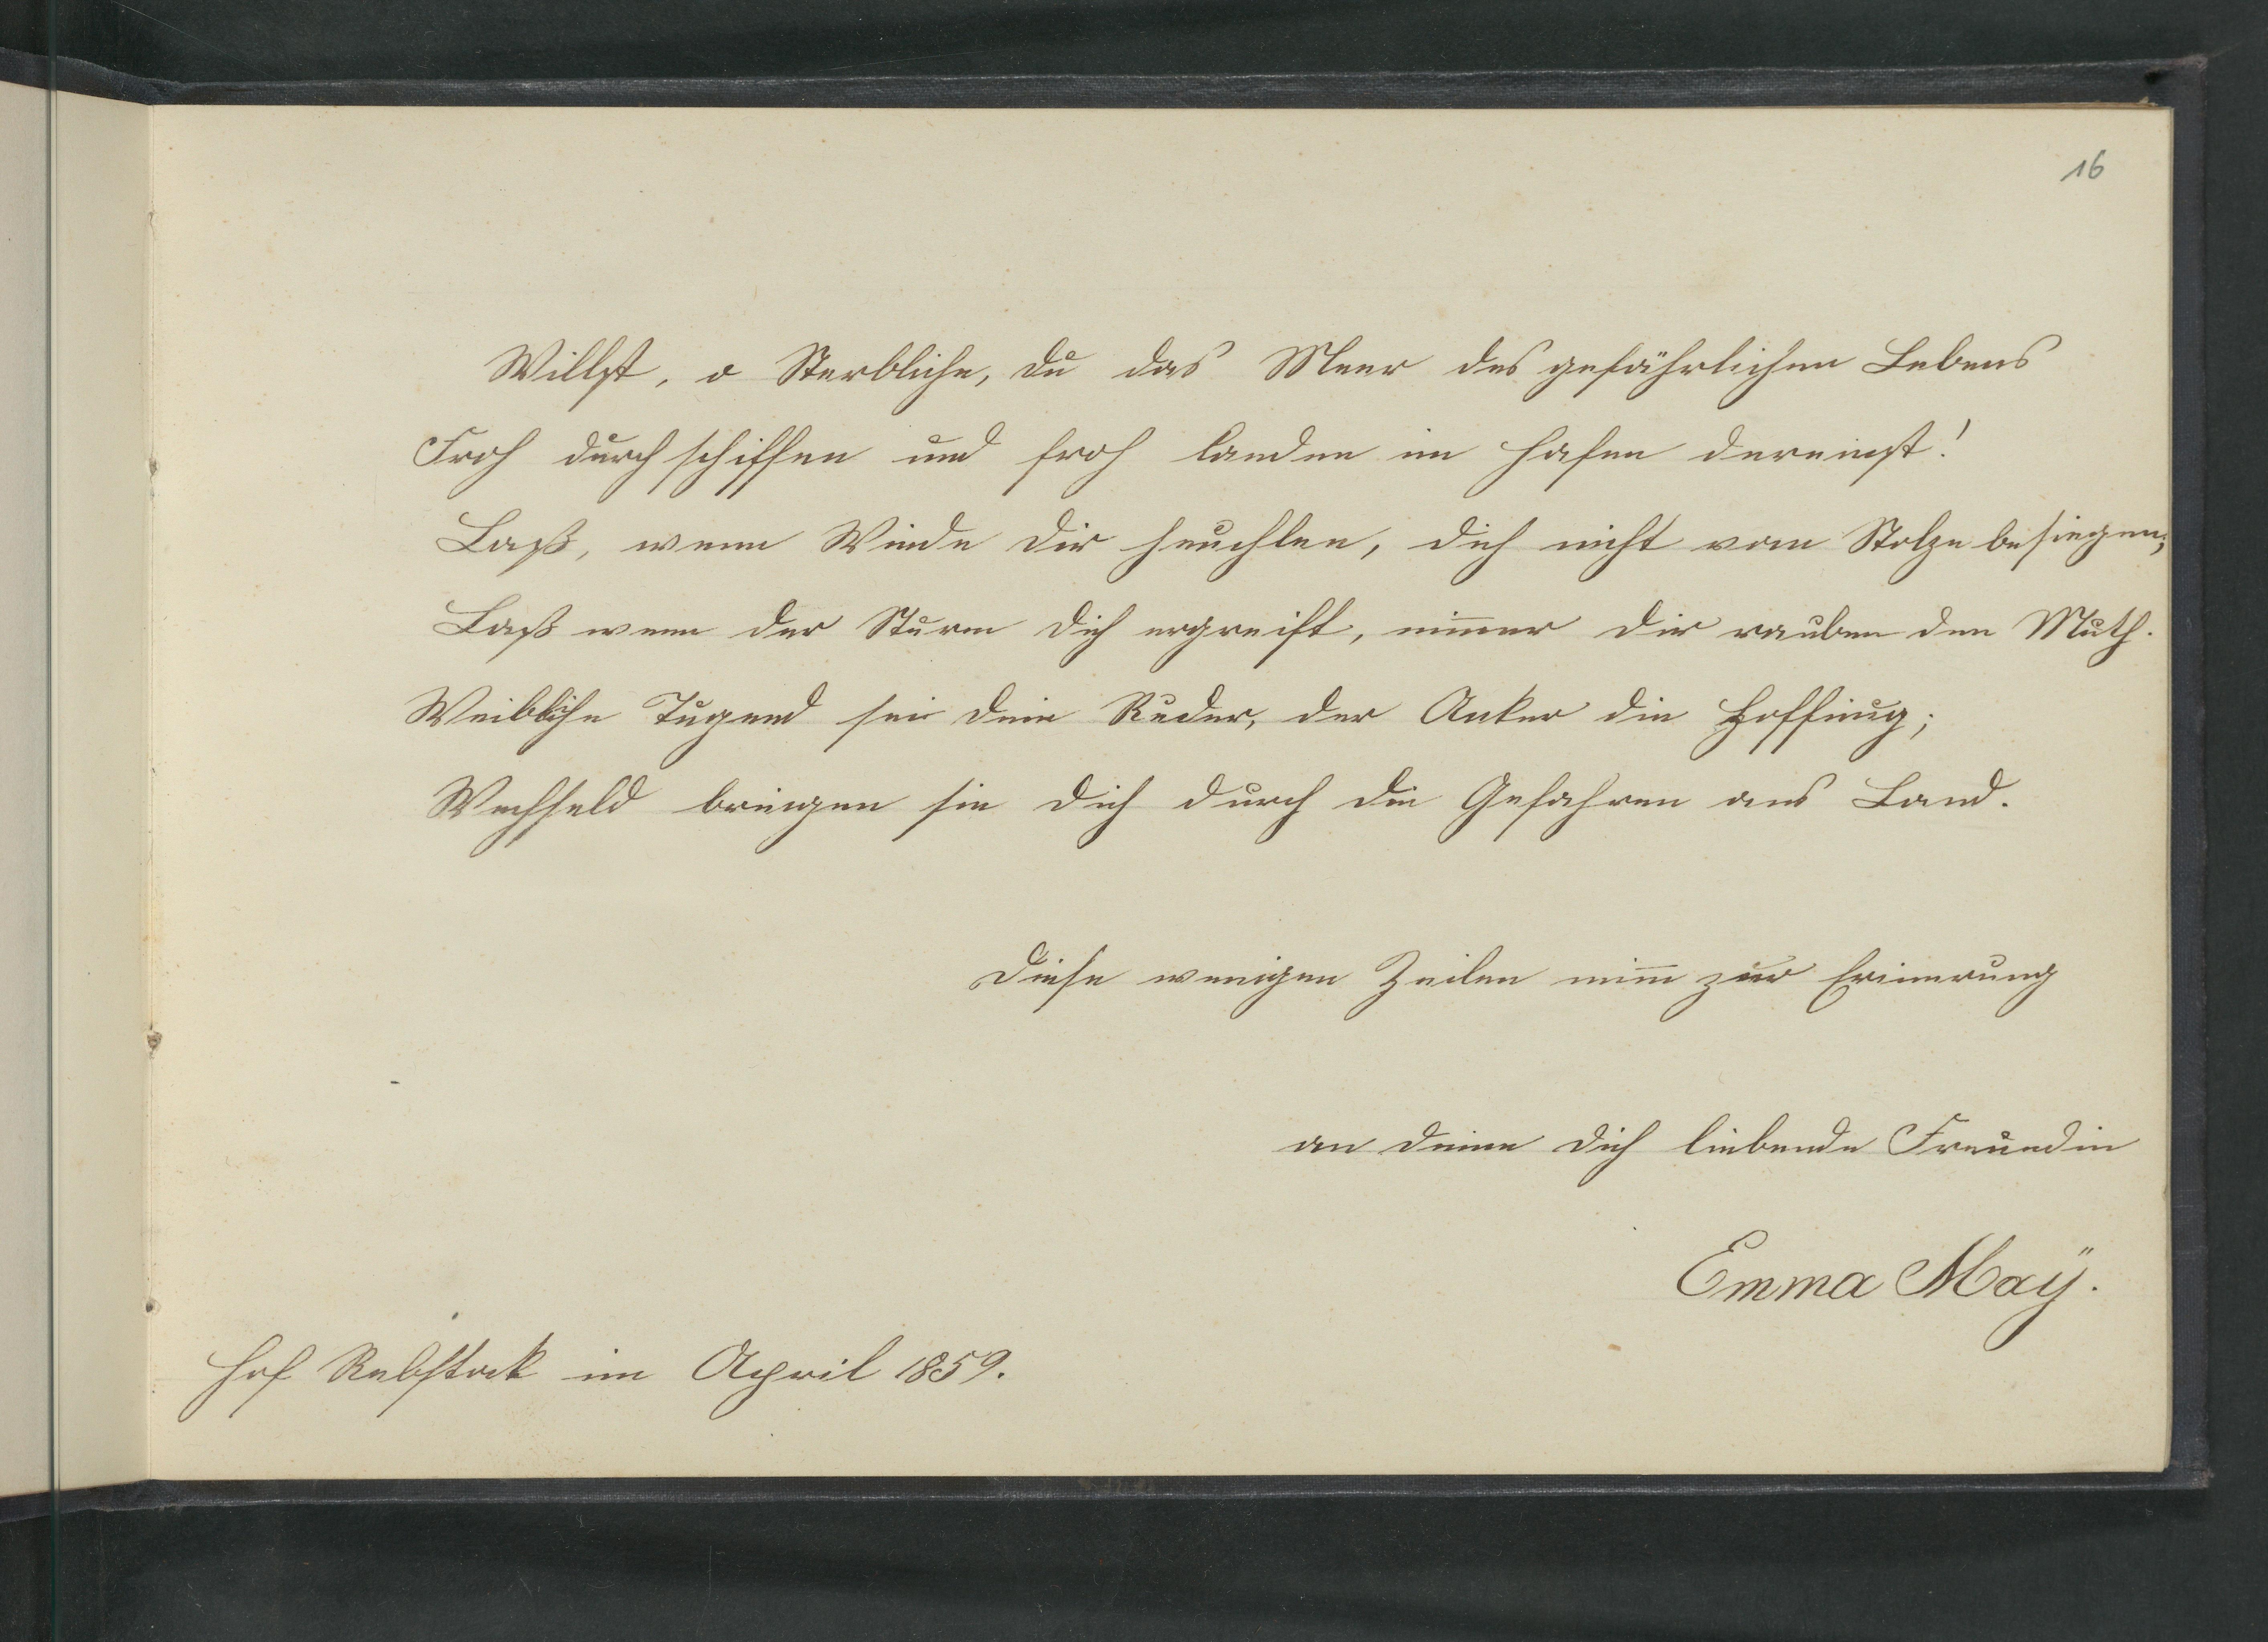 16
Willst, o Sterbliche, du das Meer des gefährlichen Lebens
Froh durchschiffen und froh landen im Hafen dereinst!
Laß, wenn Winde dir heuchlen, dich nicht vom Stolze besiegen;
Laß wenn der Sturm dich ergreift, nim̄er dir rauben den Muth.
Weibliche Tugend sei dein Ruder, der Anker die Hoffnung;
Wechselnd bringen sie dich durch die Gefahren ans Land.
Diese wenigen Zeilen nim̄ zur Erinnerung
an deine dich liebende Freundin
Emma Maÿ.
Hof Rebstock im April 1859.